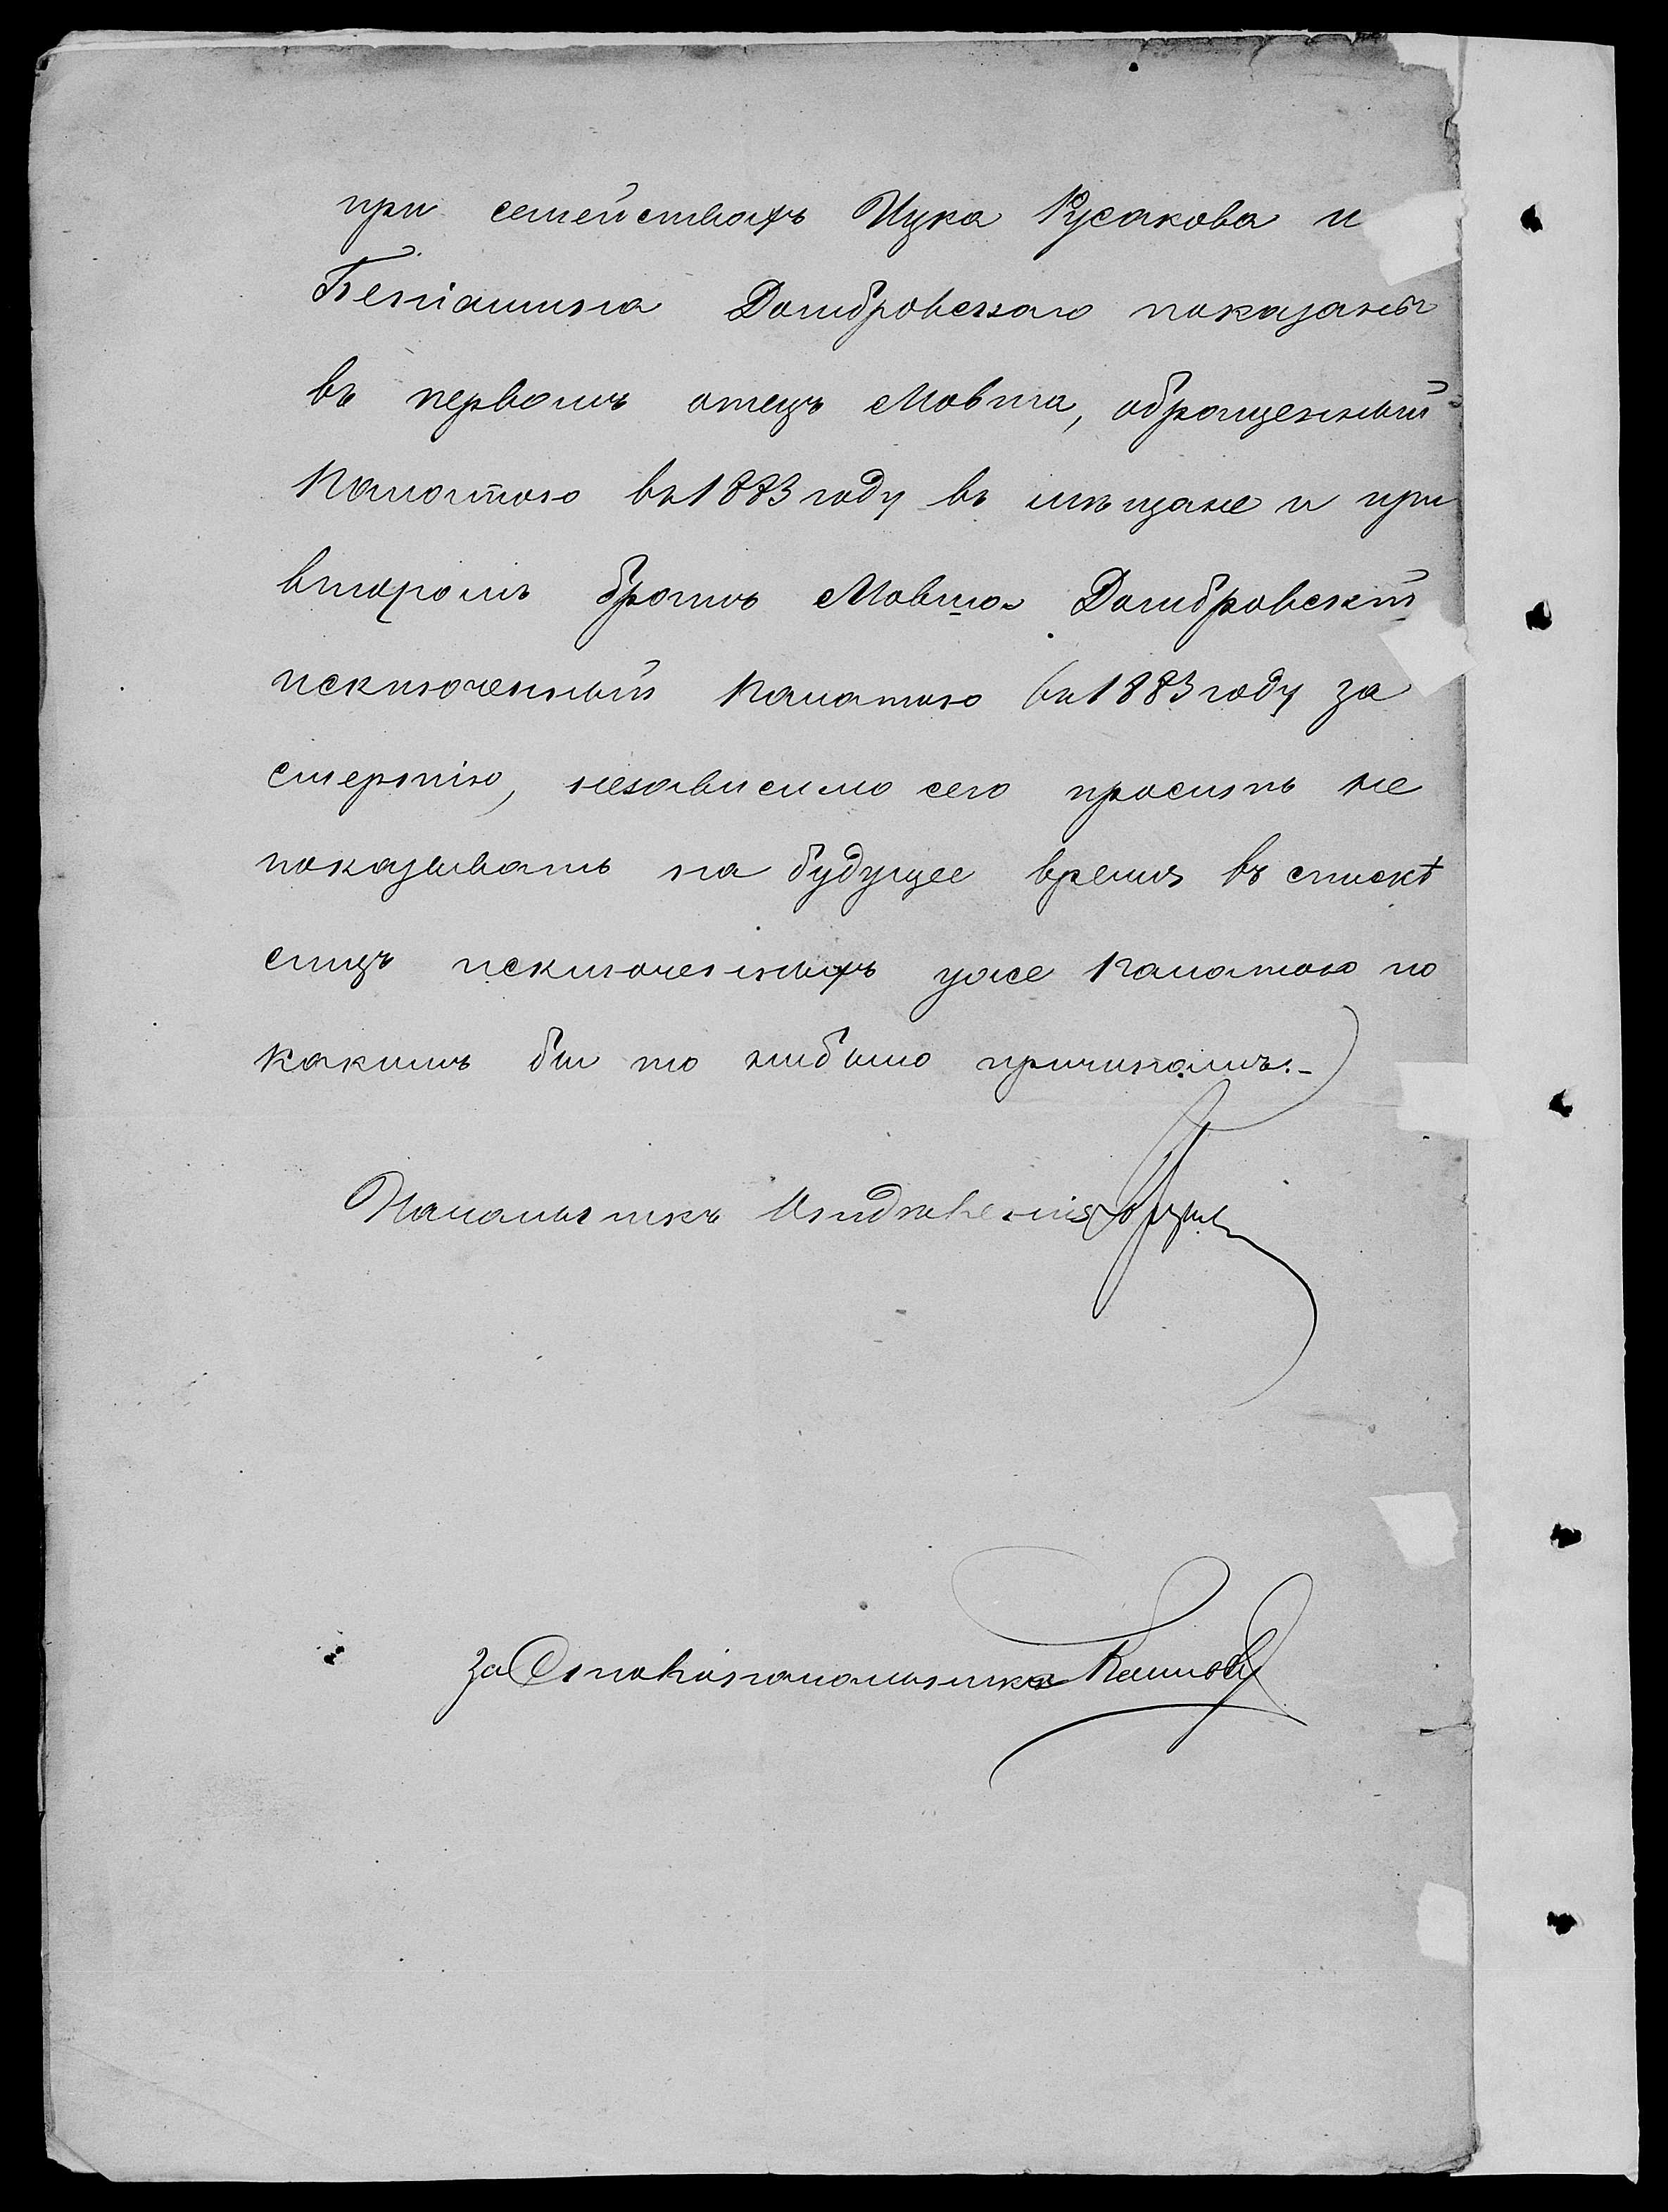 при семействахъ Ицка Русакова и
Беніамина Домбровскаго показаны
въ первомъ отецъ Мовша, обращенный
Палатою въ 1883 году въ мѣщане и при
второмъ братъ Мовша Домбровскій
исключенный Палатою въ 1883 году за
смертію, независимо сего проситъ не
показывать на будущее время въ спискѣ
лицъ исключенныхъ уже Палатою по
какимъ бы то нибыло причинамъ.-
Начальникъ Отдѣленія
за Столоначальника